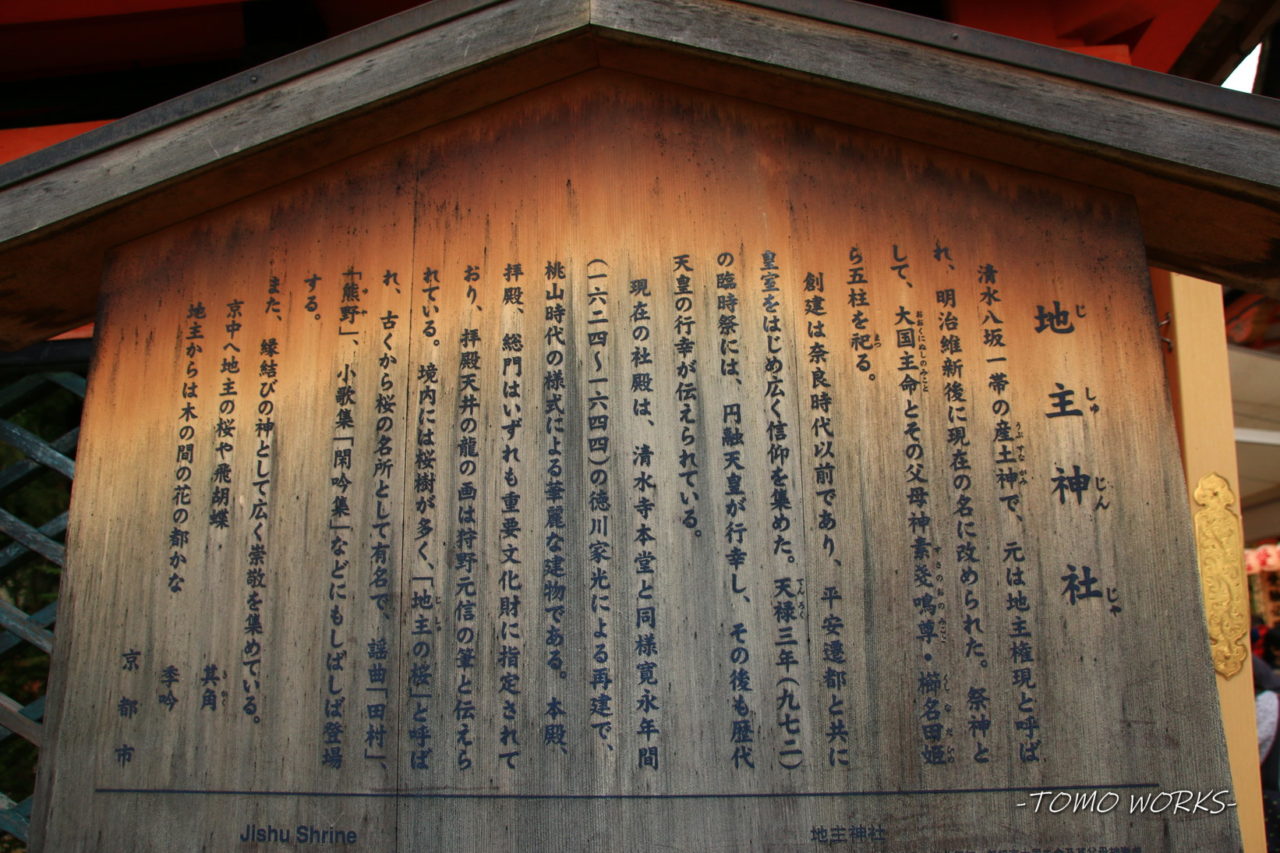 地主神社
じしゅじんじゃ
清水八坂一帯の産土神で、元は地主権現と呼ば
れ、明治維新後に現在の名に改められた。祭神と
して、大国主命とその父母神素戔嗚尊・櫛名田姫
ら五柱を祀る。
創建は奈良時代以前であり、平安遷都と共に
皇室をはじめ広く信仰を集めた。天禄三年(九七二)
の臨時祭には、円融天皇が行幸し、その後も歴代
天皇の行幸が伝えられている。
現在の社殿は、清水寺本堂と同様寛永年間
(一六二四〜一六四四)の徳川家光による再建で、
桃山時代の様式による華麗な建物である。本殿、
拝殿、総門はいずれも重要文化財に指定されて
おり、拝殿天井の龍の画は狩野元信の筆と伝えら
れている。境内には桜樹が多く、「地主の桜」と呼ば
れ、古くから桜の名所として有名で、謡曲「田村」、
「熊野」、小歌集「閑吟集」などにもしばしば登場
する。
また、縁結びの神として広く崇敬を集めている。
京中へ地主の桜や飛胡蝶 其角
地主からは木の間の花の都かな 季吟
京都市
Jishu Shrine
地主神社
-TOMO WORKS-